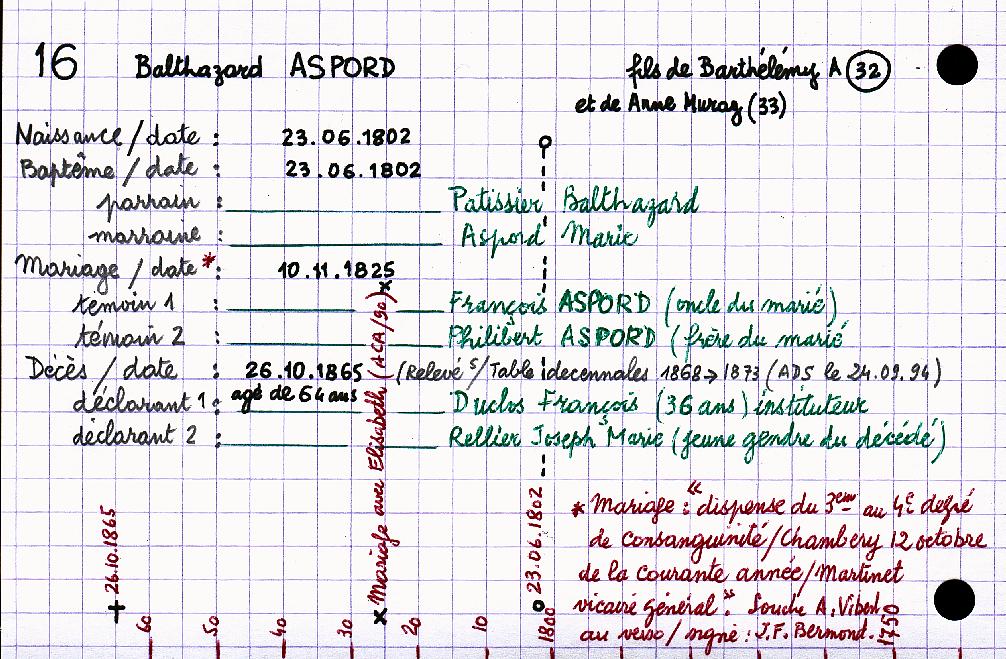 16 Balthazard ASPORD fils de Barthélémy A 32
et de Anne Muraz (33)
Naissance / date : 23.06.1802
Baptême / date : 23.06.1802
parrain : Patissier Balthazard
marraine : Aspord Marie
Mariage / date * : 10.11.1825
témoin 1 François ASPORD (oncle du marié)
témoin 2 : Philibert ASPORD (frère du marié
Décès / date : 26.10.1865 (Relevé s/Table decennales 1868→1873 (ADS le 24.09.94)
agé de 64 ans
déclarant 1 : Duclos François (36 ans) instituteur
déclarant 2 : Rellier Joseph Marie (jeune gendre du décédé)
+ 26.10.1865
x Mariage avec Elisabeth (ACA/90) x
23.06.1802
* Mariage : "dispense du 3eme au 4e degré
de consanguinité / Chambery 12 octobre
de la courante année / Martinet
vicaire général". Souche A. Vibert
au verso / signé : J.F. Bermond.
60 50 30 20 10 1800 1750